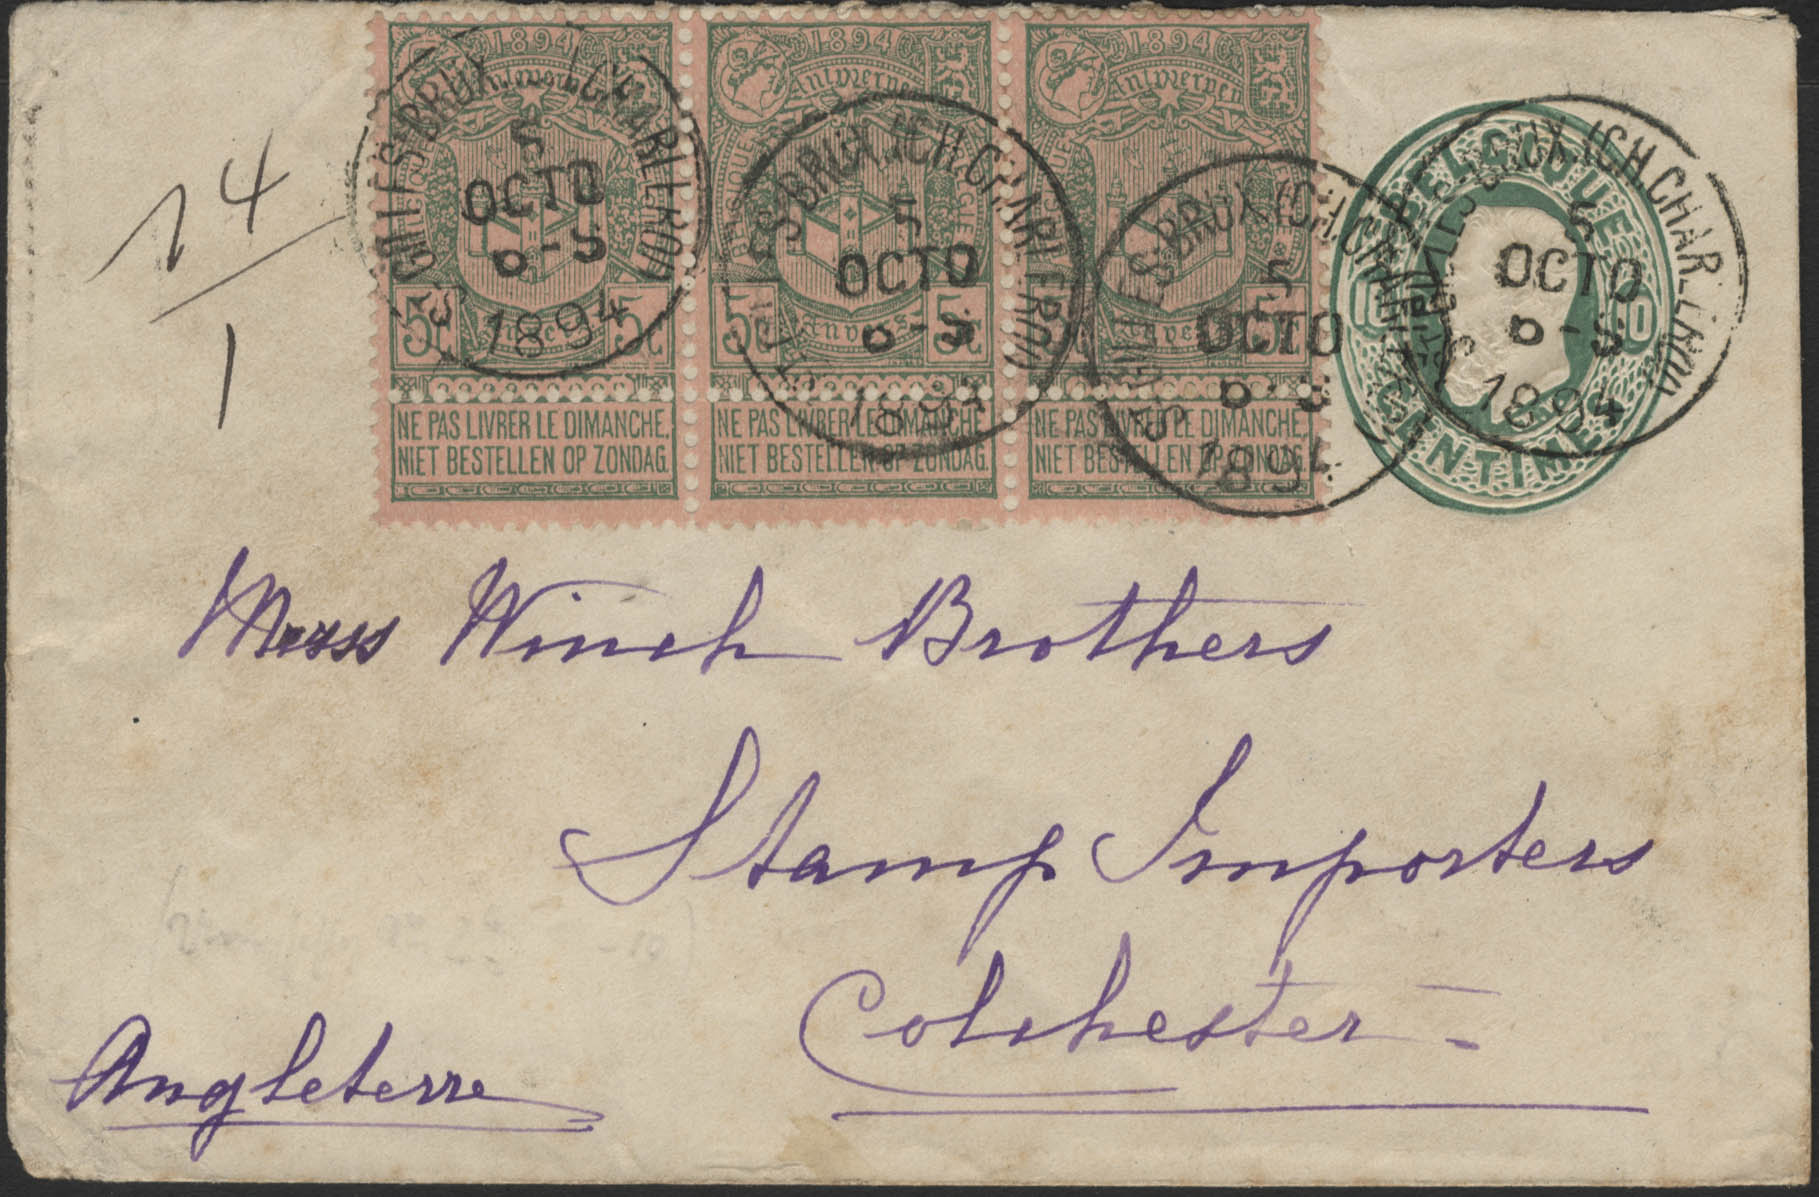 1894 1894 1894
Antwerpen Antwerpen Antwerpen
5c 5c 5c 5c 5c
Anvers Anvers Anvers
NE PAS LIVRER LE DIMANCHE. NE PAS LIVRER LE DIMANCHE. NE PAS LIVRER LE DIMANCHE.
NIET BESTELLEN OP ZONDAG. NIET BESTELLEN OP ZONDAG. NIET BESTELLEN OP ZONDAG.
ST GILLES-BRUX. (CH. CHARLEROI)
5
OCTO
6-S
1894
ST GILLES-BRUX. (CH. CHARLEROI)
5
OCTO
6-S
1894
ST GILLES-BRUX. (CH. CHARLEROI)
5
OCTO
6-S
1894
ST GILLES-BRUX. (CH. CHARLEROI)
5
OCTO
6-S
1894
BELGIQUE
10 10
CENTIMES
24
1
Messs Winch Brothers
Stamp Importers
Colchester
Angleterre